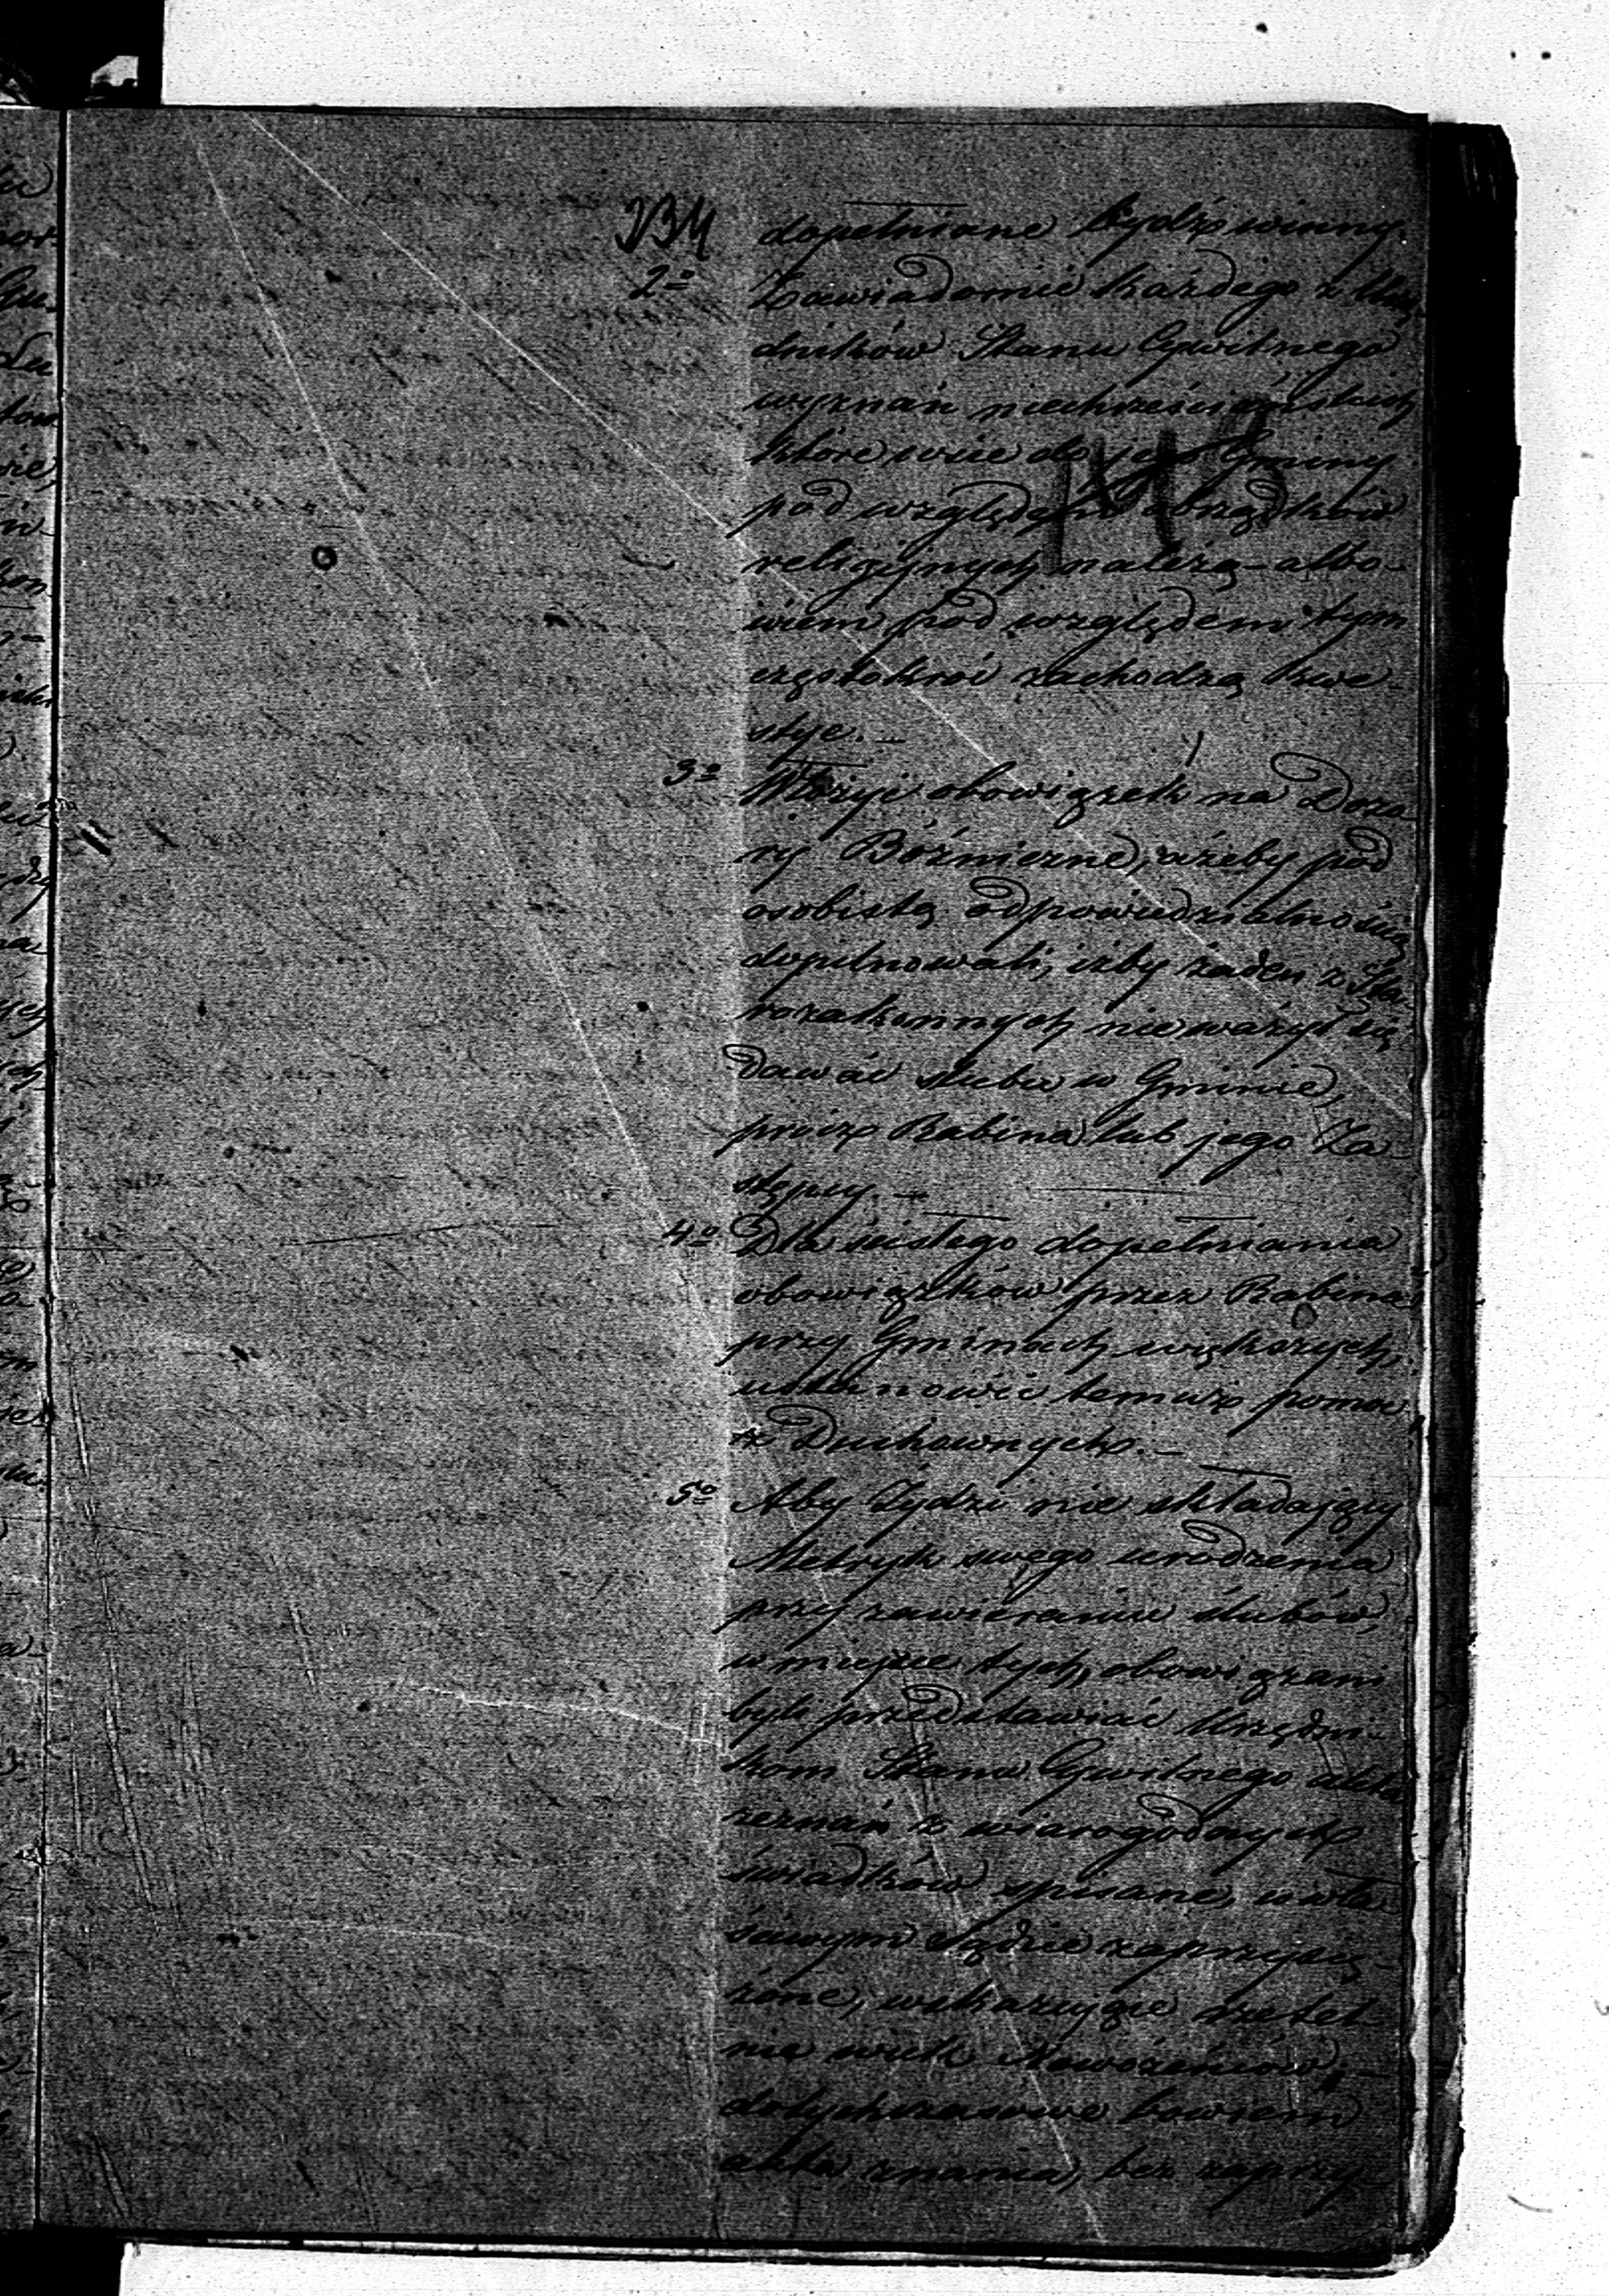 234
dopełniane bydź winny.
2o Zawiadomić każdego z Urzę
dników Stanu Cywilnego
wyznań niechrześciańskich
które wsie do jego Gminy
pod względem obrządków
religijnych należą – albo-
wiem pod względem tym
częstokroć zachodzą kwe-
stye. –
3o Włożyć obowiązek na Dozo-
ry Bóżnicze, ażeby pod
osobistą odpowiedzialnością
dopilnowali, iżby żaden z Sta-
rozakonnych nie ważył się
dawać ślubu w Gminie,
prócz Rabina lub jego Za-
stępcy. –
4o Dla ścisłego dopełniania
obowiązków przez Rabina
przy Gminach większych,
ustanowić temuż pomoc
z Duchownych. –
5o Aby Żydzi nie składający
Metryk swego urodzenia
przy zawieraniu ślubów,
w miejsce tych obowiązani
byli przedstawiać Urzędni-
kom Stanu Cywilnego akta
zeznań z wiarogodnych
świadków spisane, w wła
ściwym Sądzie zaprzysię-
żone, wskazujące rzetel-
nie wiek Nowożeńców, –
dotychczasowe bowiem
akta znania, bez zaprzy-